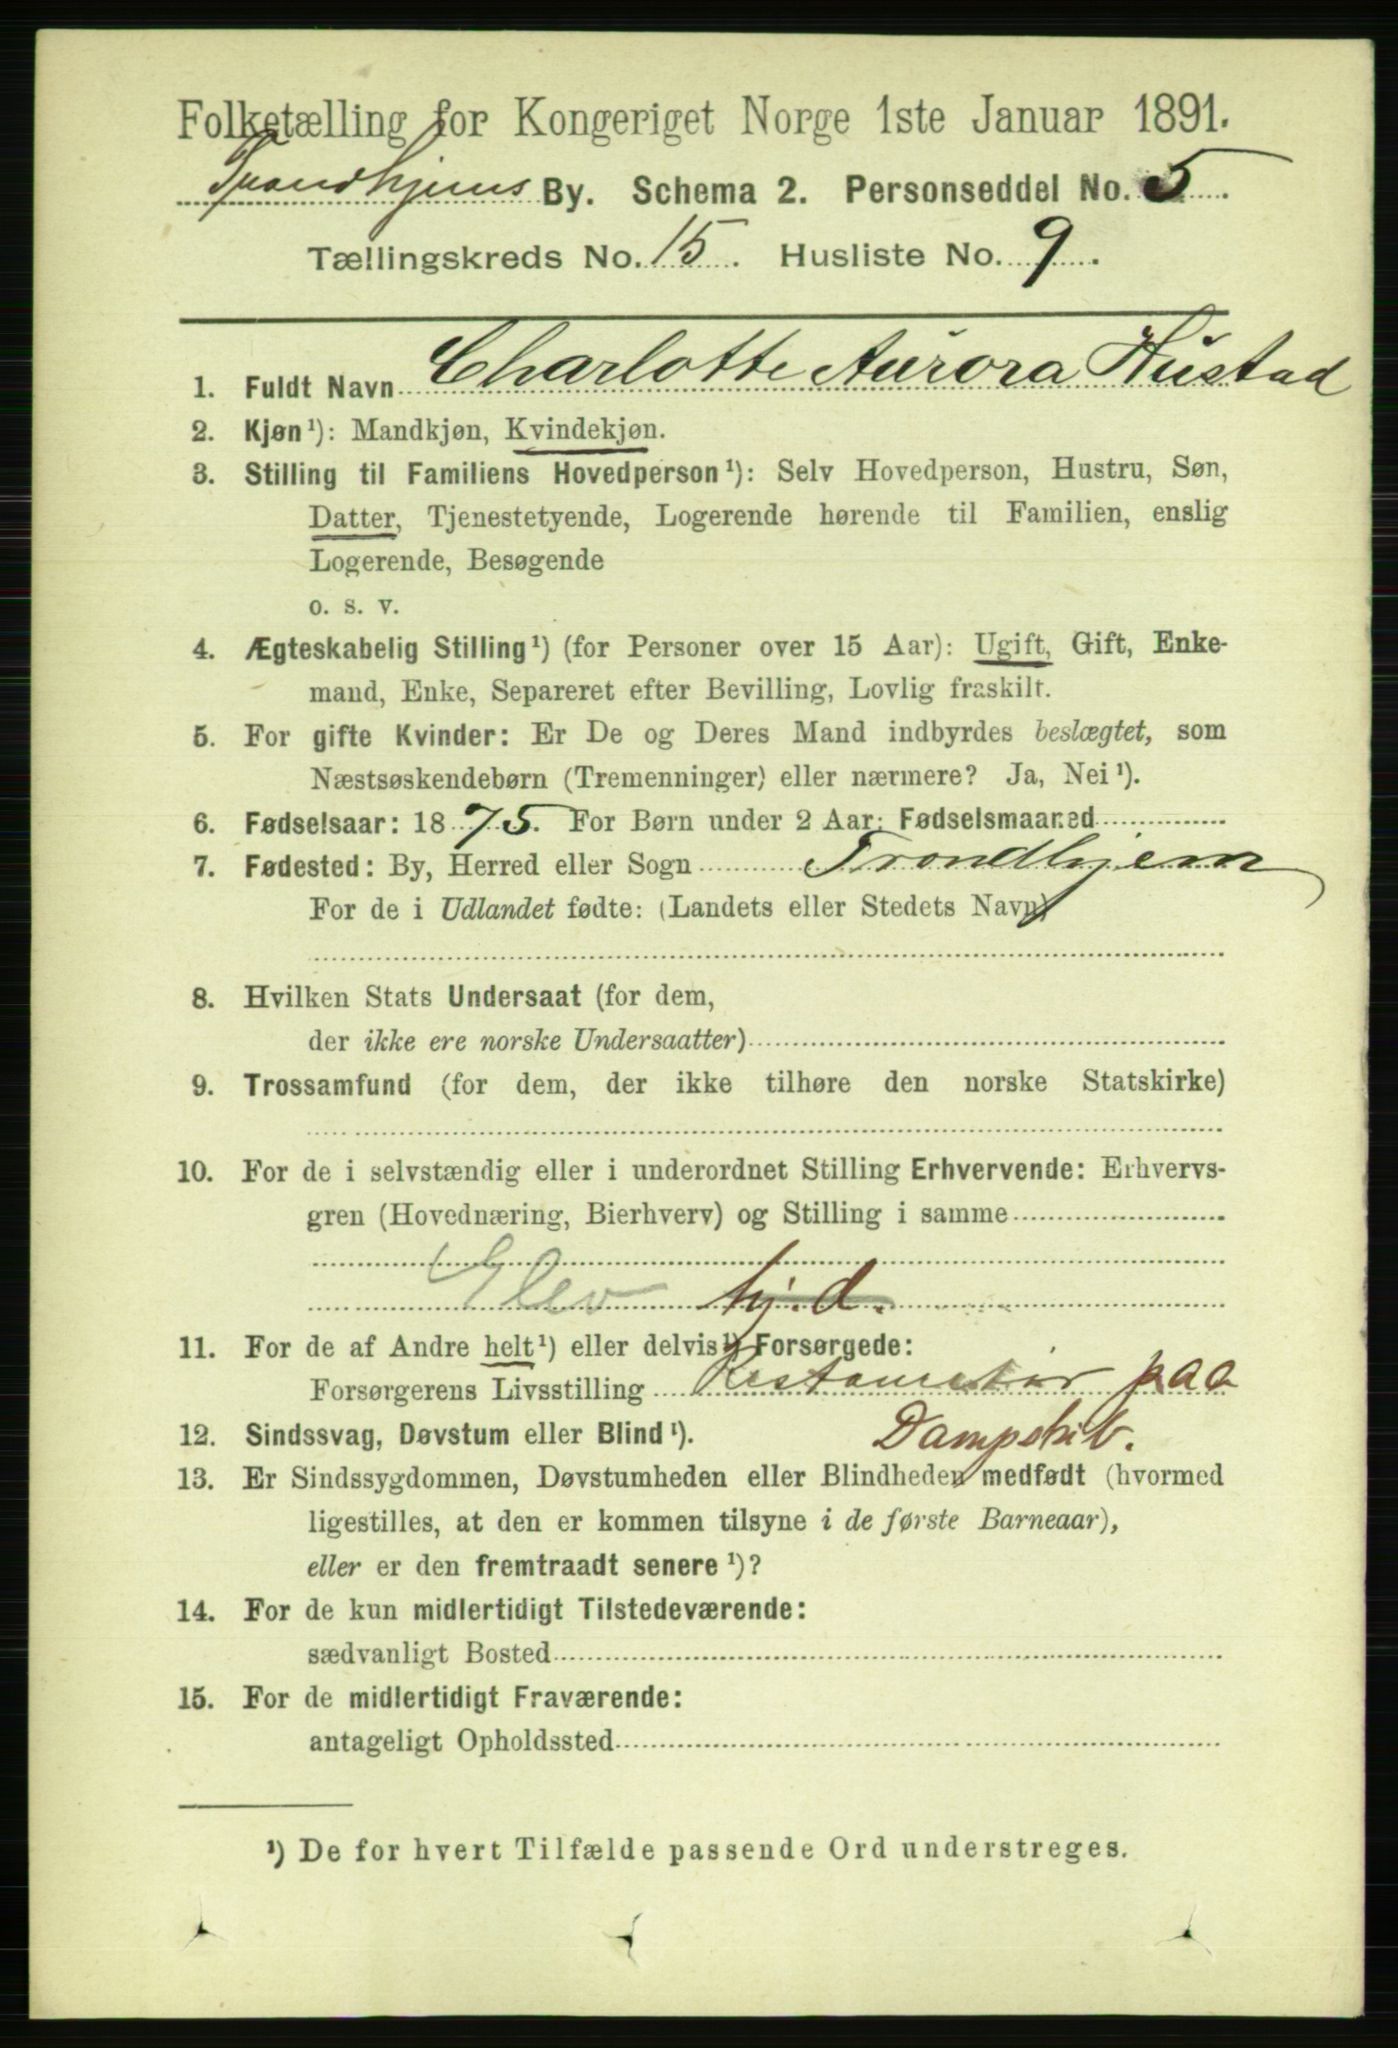 Folketælling for Kongeriget Norge 1ste Januar 1891.
Trondhjems By. Schema 2. Personseddel No. 5
Tællingskreds No. 15. Husliste No. 9.
1. Fuldt Navn Charlotte Aurora Hustad
2. Kjøn¹): Mandkjøn, Kvindekjøn.
3. Stilling til Familiens Hovedperson¹): Selv Hovedperson, Hustru, Søn,
Datter, Tjenestetyende, Logerende hørende til Familien, enslig
Logerende, Besøgende
o. s. v.
4. Ægteskabelig Stilling¹) (for Personer over 15 Aar): Ugift, Gift, Enke-
mand, Enke, Separeret efter Bevilling, Lovlig fraskilt.
5. For gifte Kvinder: Er De og Deres Mand indbyrdes beslægtet, som
Næstsøskendebørn (Tremenninger) eller nærmere? Ja, Nei¹).
6. Fødselsaar: 1875. For Børn under 2 Aar: Fødselsmaaned
7. Fødested: By, Herred eller Sogn Trondhjem
For de i Udlandet fødte: (Landets eller Stedets Navn)
8. Hvilken Stats Undersaat (for dem,
der ikke ere norske Undersaatter)
9. Trossamfund (for dem, der ikke tilhøre den norske Statskirke)
10. For de i selvstændig eller i underordnet Stilling Erhvervende: Erhvervs-
gren (Hovednæring, Bierhverv) og Stilling i samme
Elev hj. d.
11. For de af Andre helt¹) eller delvis¹) Forsørgede:
Forsørgerens Livsstilling Restauratør paa
12. Sindssvag, Døvstum eller Blind¹). Dampskib.
13. Er Sindssygdommen, Døvstumheden eller Blindheden medfødt (hvormed
ligestilles, at den er kommen tilsyne i de første Barneaar),
eller er den fremtraadt senere¹)?
14. For de kun midlertidigt Tilstedeværende:
sædvanligt Bosted
15. For de midlertidigt Fraværende:
antageligt Opholdssted
¹) De for hvert Tilfælde passende Ord understreges.